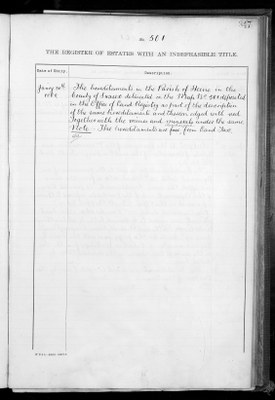 No. 501
THE REGISTER OF ESTATES WITH AN INDEFEASIBLE TITLE.
Date of Entry. Description.
The hereditaments in the Parish of in the
County of delineated in the Map No. deposited
in the Office of Land Registry as part of the description
of the same hereditaments and thereon edged with red
Together with the mines and minerals under the same.
Note. The hereditaments are free from Land Tax.